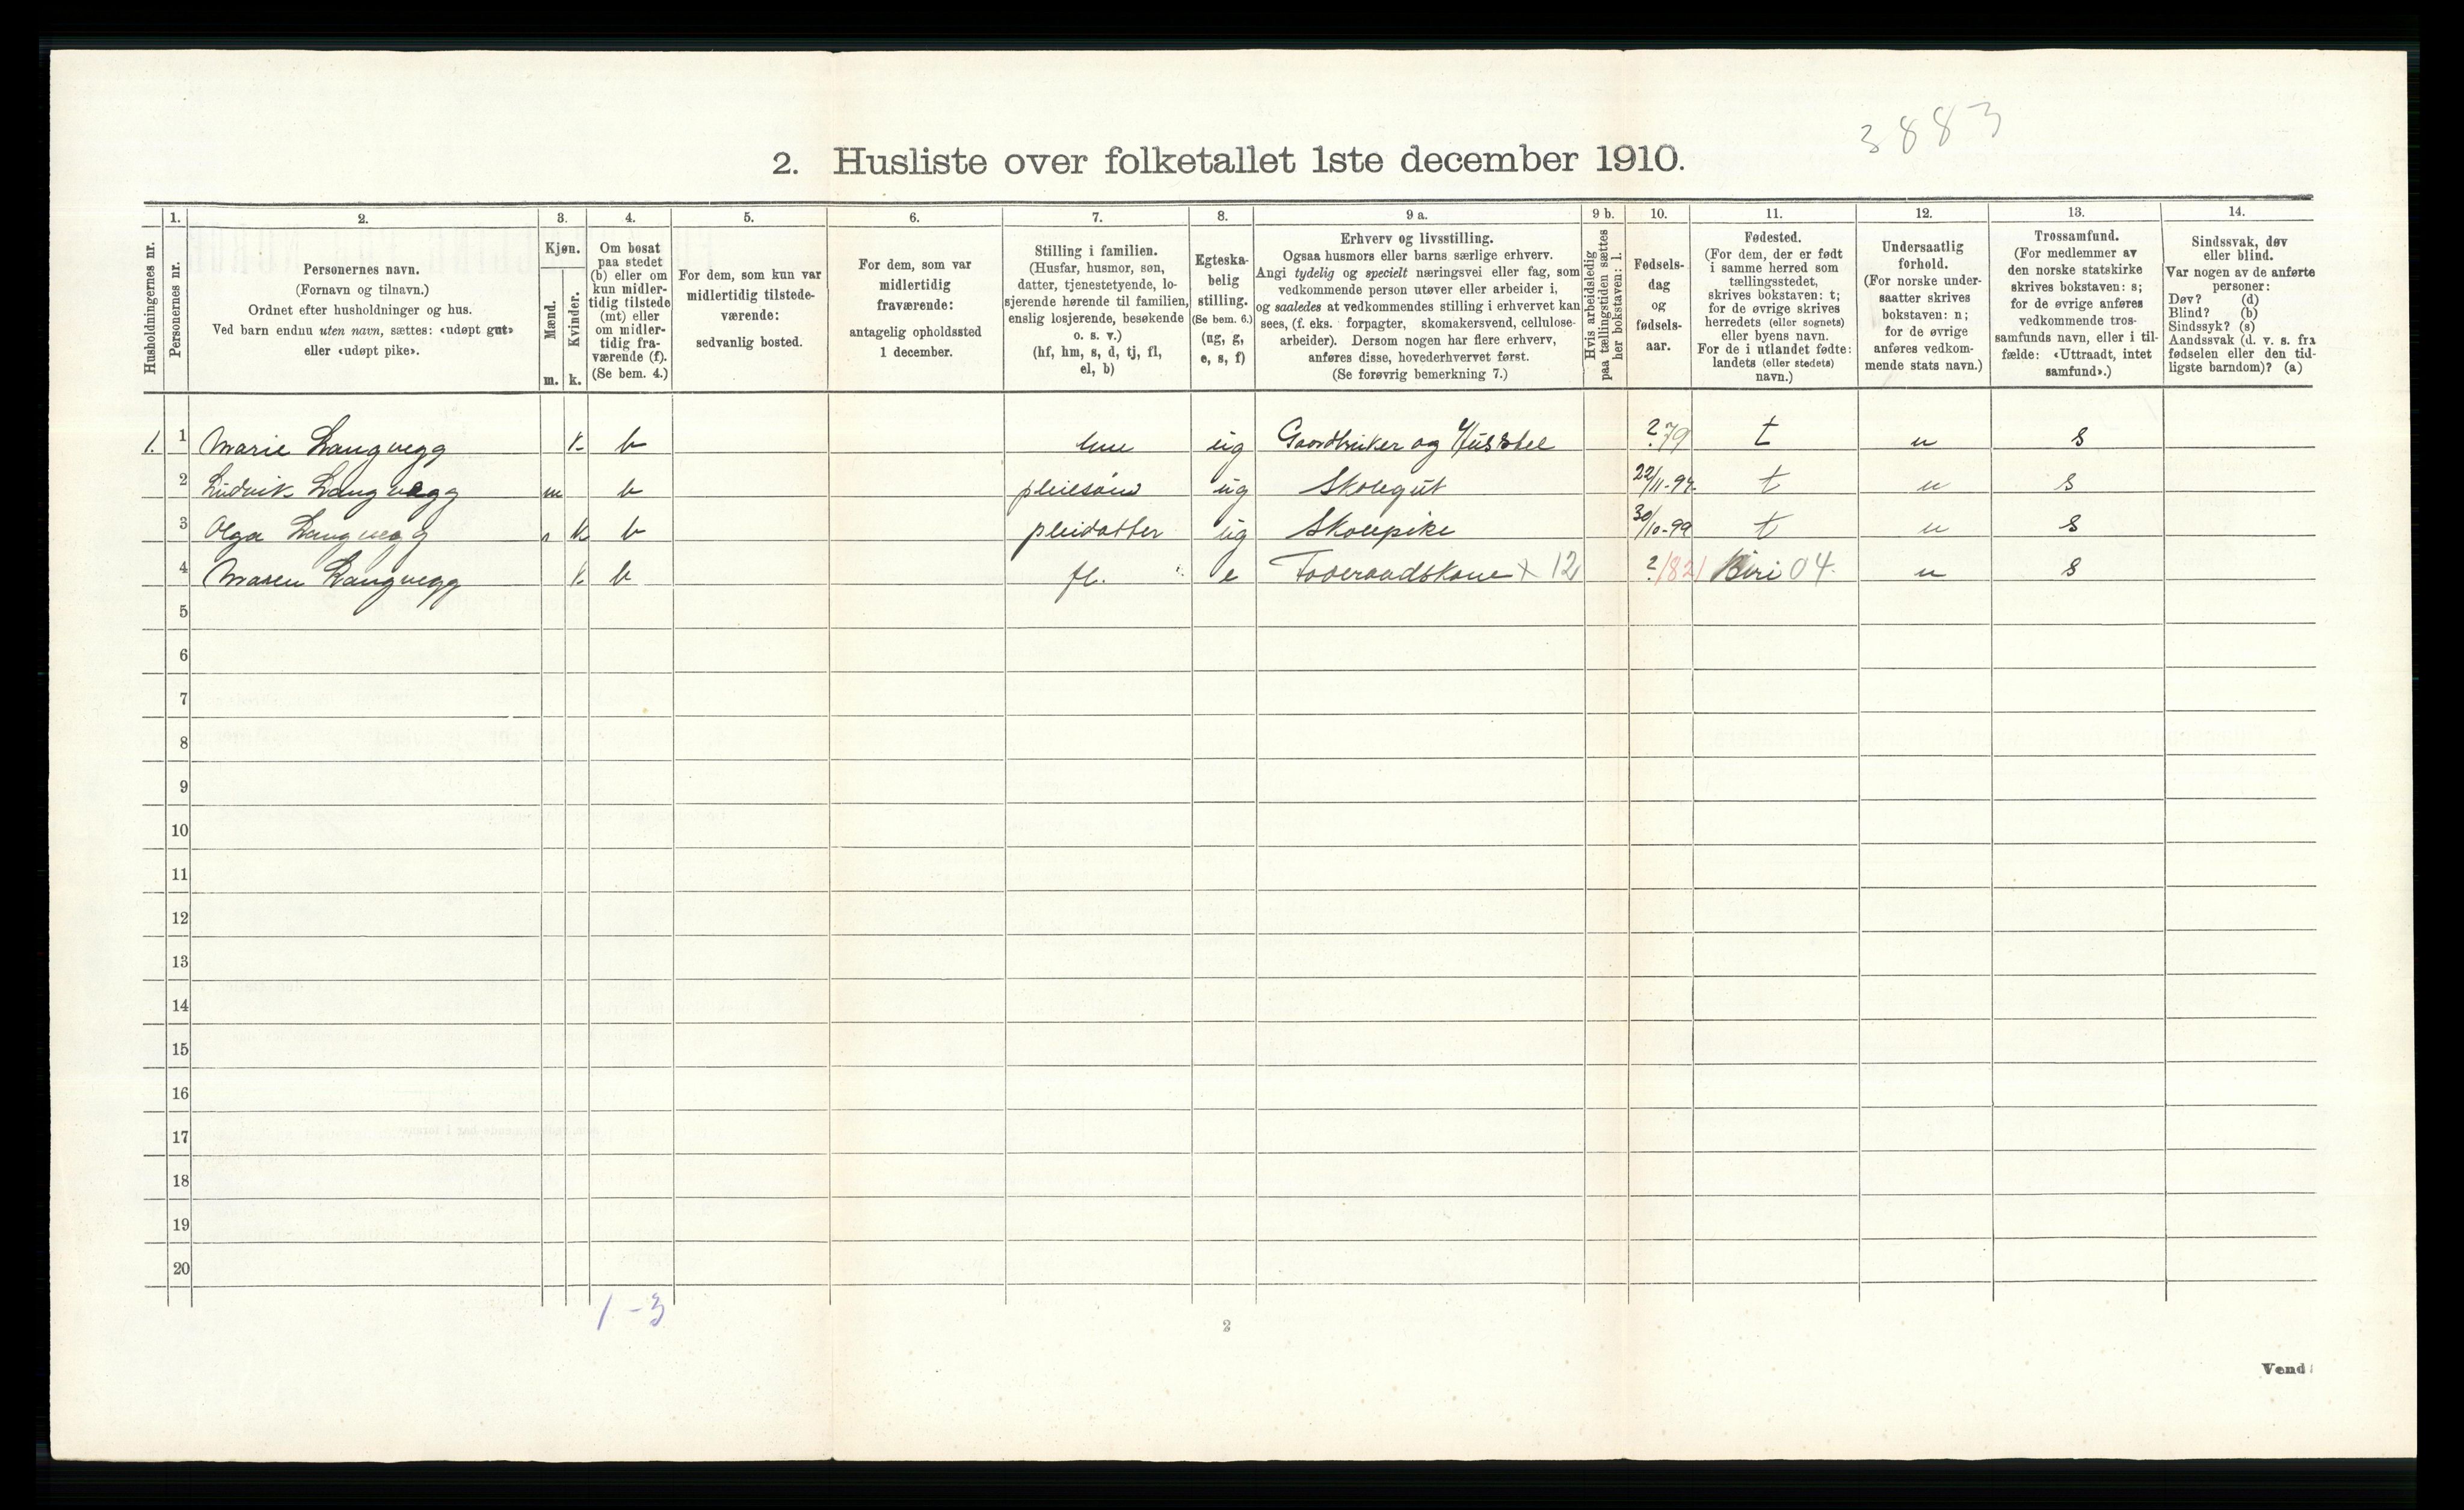 3883
2. Husliste over folketallet 1ste december 1910.
1. 2. 3. 4. 5. 6. 7. 8. 9 a. 9 b. 10. 11. 12. 13. 14.
Husholdningernes nr.
Personernes nr.
Personernes navn.
(Fornavn og tilnavn.)
Ordnet efter husholdninger og hus.
Ved barn endnu uten navn, sættes: «udøpt gut»
eller «udøpt pike».
Kjøn.
Mænd.
Kvinder.
m. k.
Om bosat
paa stedet
(b) eller om
kun midler-
tidig tilstede
(mt) eller
om midler-
tidig fra-
værende (f).
(Se bem. 4.)
For dem, som kun var
midlertidig tilstede-
værende:
sedvanlig bosted.
For dem, som var
midlertidig
fraværende:
antagelig opholdssted
1 december.
Stilling i familien.
(Husfar, husmor, søn,
datter, tjenestetyende, lo-
sjerende hørende til familien,
enslig losjerende, besøkende
o. s. v.)
(hf, hm, s, d, tj, fl,
el, b)
Egteska-
belig
stilling.
(Se bem. 6.)
(ug, g,
e, s, f)
Erhverv og livsstilling.
Ogsaa husmors eller barns særlige erhverv.
Angi tydelig og specielt næringsvei eller fag, som
vedkommende person utøver eller arbeider i,
og saaledes at vedkommendes stilling i erhvervet kan
sees, (f. eks. forpagter, skomakersvend, cellulose-
arbeider). Dersom nogen har flere erhverv,
anføres disse, hovederhvervet først.
(Se forøvrig bemerkning 7.)
Hvis arbeidsledig
paa tællingstiden sættes
her bokstaven: l.
Fødsels-
dag
og
fødsels-
aar.
Fødested.
(For dem, der er født
i samme herred som
tællingsstedet,
skrives bokstaven: t;
for de øvrige skrives
herredets (eller sognets)
eller byens navn.
For de i utlandet fødte:
landets (eller stedets)
navn.)
Undersaatlig
forhold.
(For norske under-
saatter skrives
bokstaven: n;
for de øvrige
anføres vedkom-
mende stats navn.)
Trossamfund.
(For medlemmer av
den norske statskirke
skrives bokstaven: s;
for de øvrige anføres
vedkommende tros-
samfunds navn, eller i til-
fælde: «Uttraadt, intet
samfund».)
Sindssvak, døv
eller blind.
Var nogen av de anførte
personer:
Døv? (d)
Blind? (b)
Sindssyk? (s)
Aandssvak (d. v. s. fra
fødselen eller den tid-
ligste barndom)? (a)
1. 1 Marie Langvegg k b hm ug Gaardbruker og Husstel ? 79 t n s
2 Ludvik Langvegg m b pleiesøn ug Skolegut t n s
3 Olga Langvegg k b pleidatter ug Skolepike 30/10-99 t n s
4 Maren Langvegg k b fl. e Foderaadskone x 12 ? 1821 Biri 04 n s
5
6
7
8
9
10
11
12
13
14
15
16
17
18
19
20
1-3
2
Vend